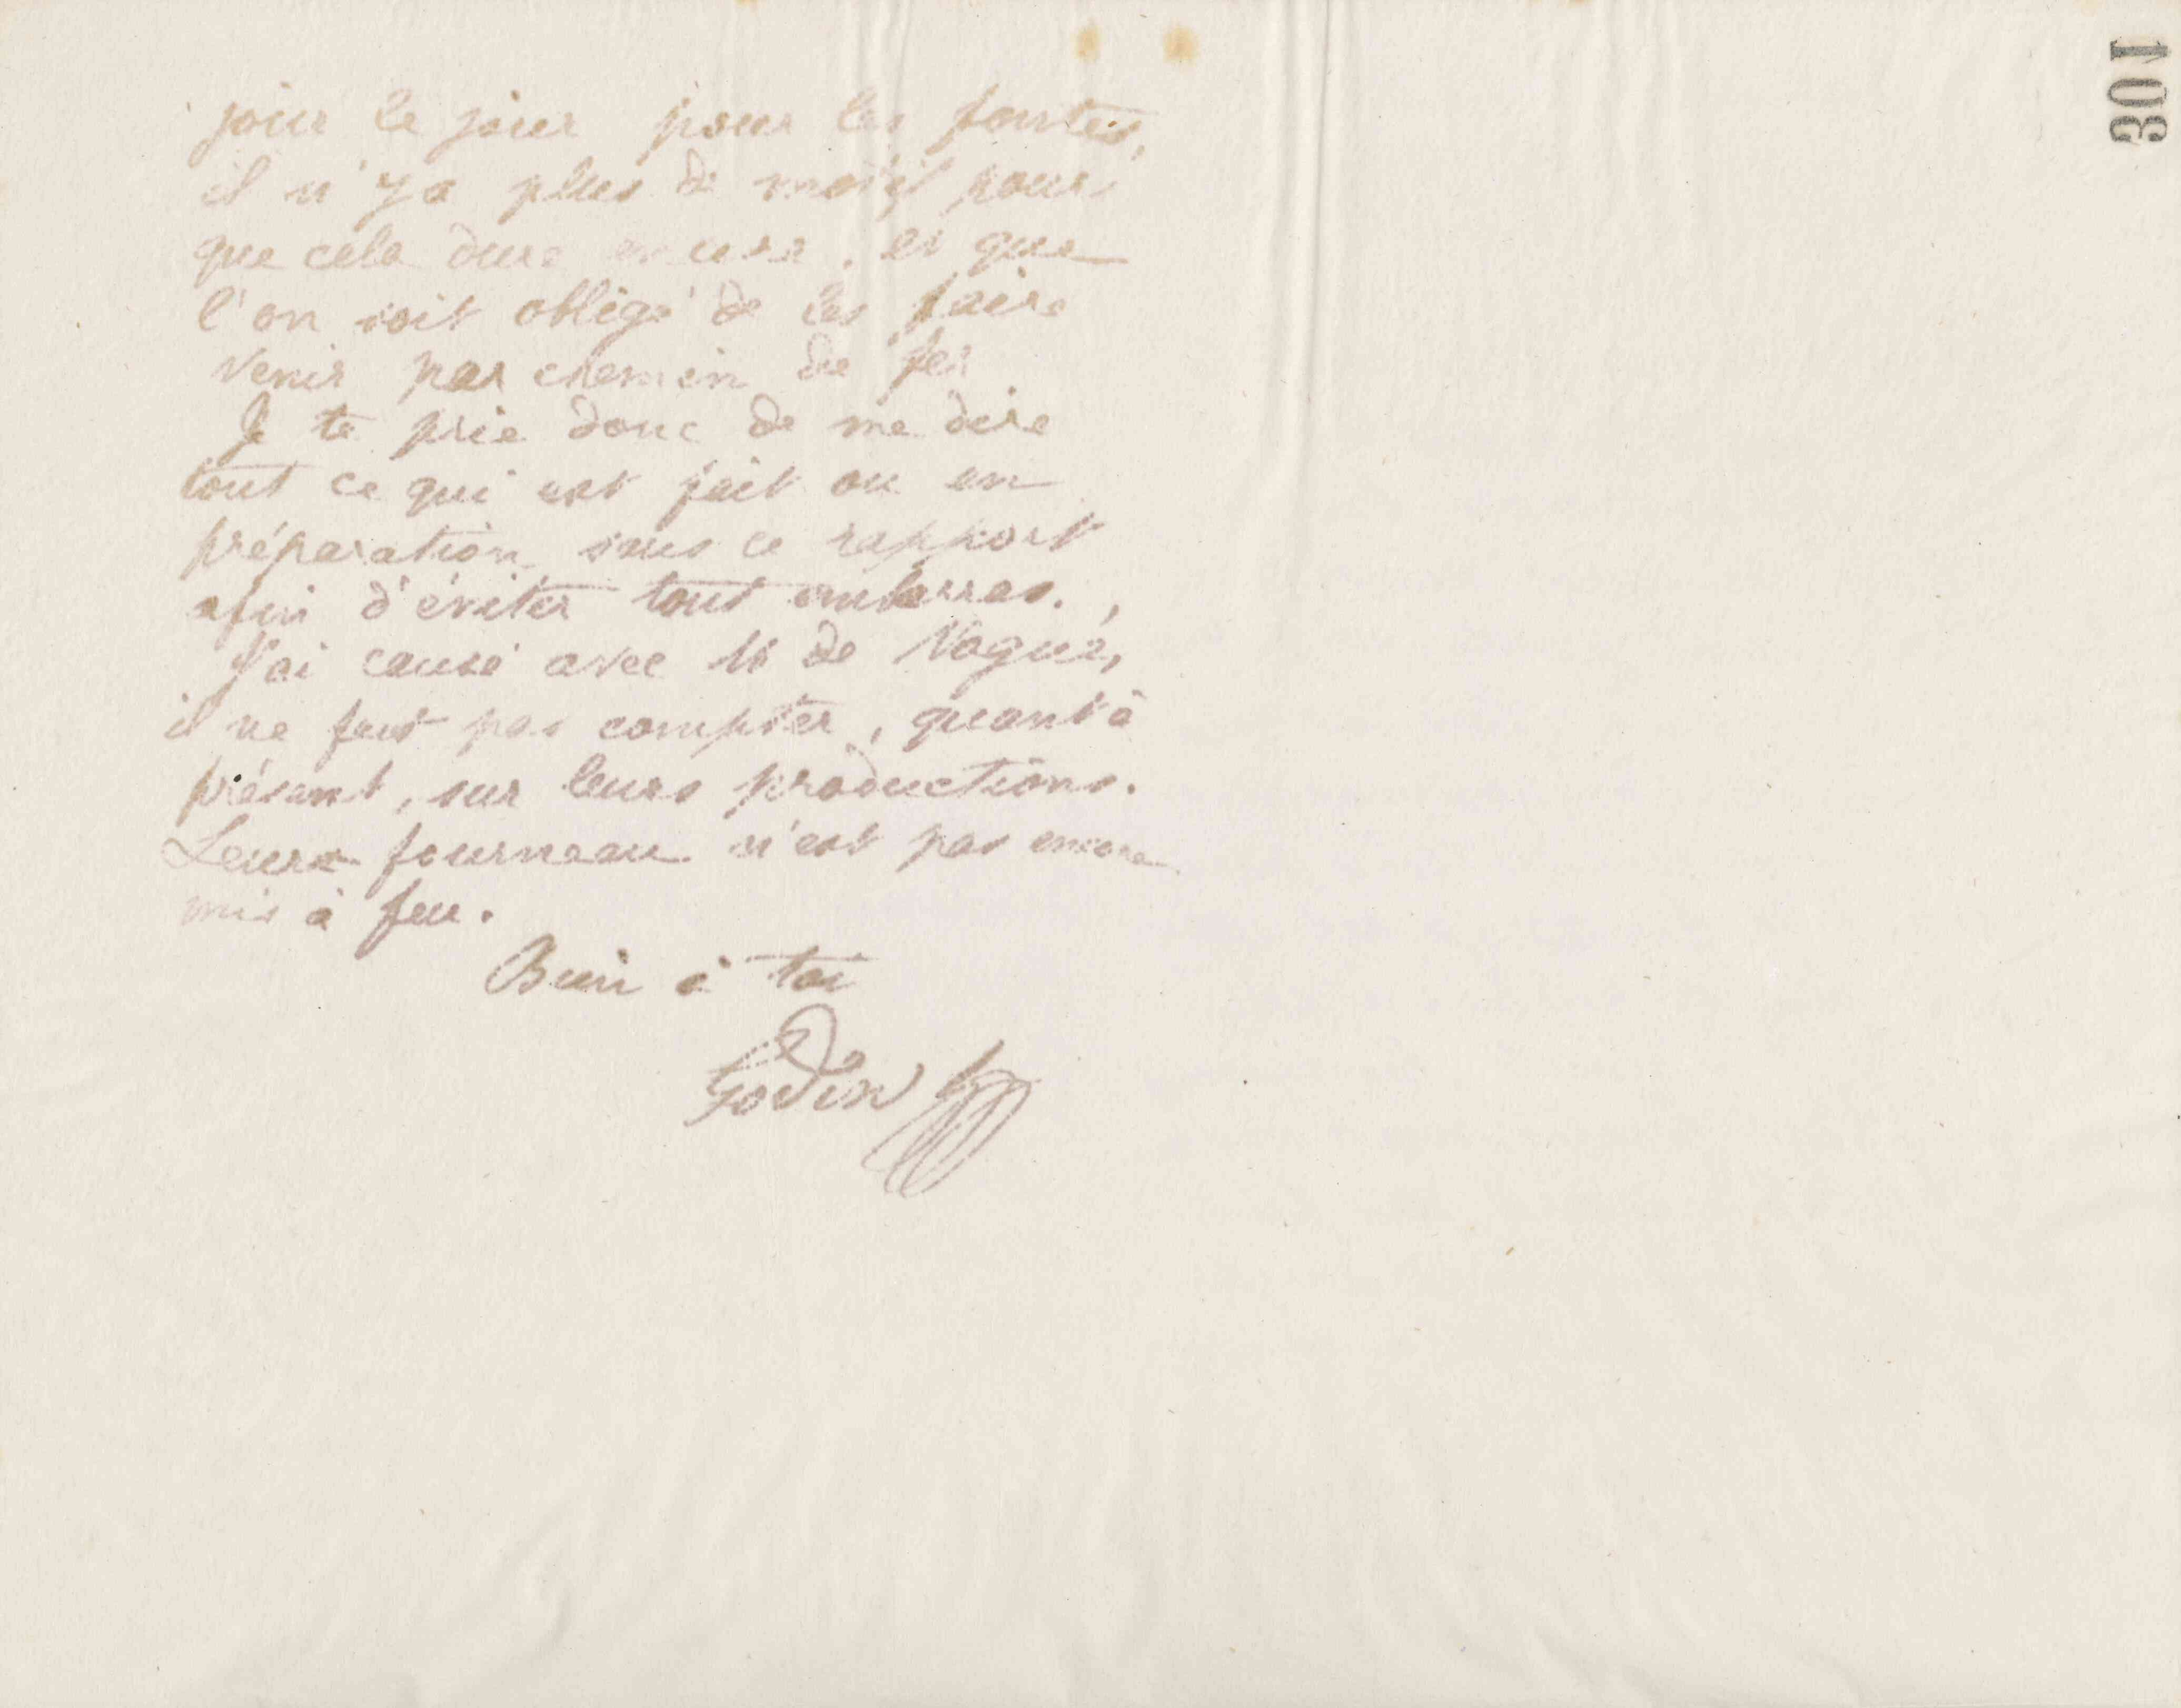 103
jour le jour pour les fontes,
il n'y a plus de motif pour
que cela dure encore, et que
l'on soit obligé de les faire
venir par chemin de fer
Je te prie donc de me dire
tout ce qui est fait ou en
préparation sous ce rapport
afin d'éviter tout embarras.
J'ai causé avec M de Vogué,
il ne faut pas compter, quant à
présent, sur leurs productions.
Leur fourneau n'est pas encore
mis à feu.
Bien à toi
Godin